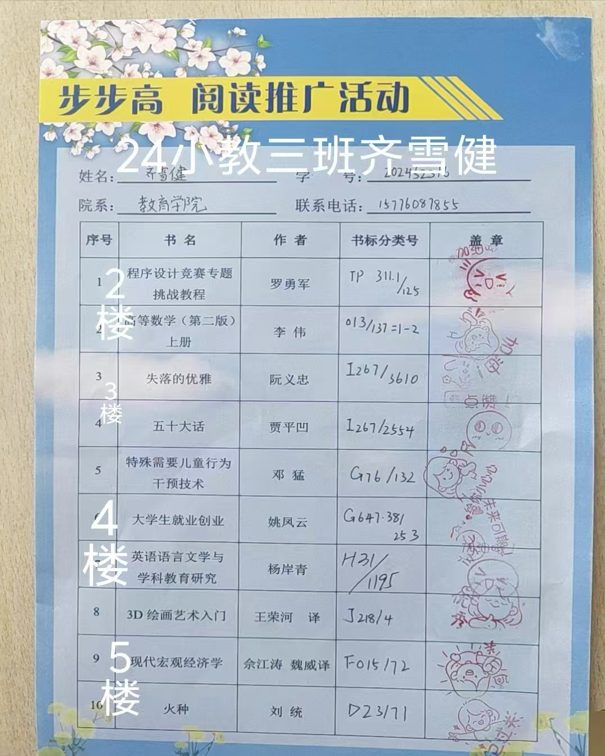 步步高 阅读推广活动
24小教三班齐雪健
姓名: 齐雪健 学 号:
院系: 教育学院 联系电话: 15776087855
序号 书 名 作 者 书标分类号 盖 章
1 程序设计竞赛专题挑战教程 罗勇军 TP 311.1/125
2楼
高等数学(第二版)上册 李 伟 013/137=1-2
3 失落的优雅 阮义忠 I267/3610
3楼
4 五十大话 贾平凹 I267/2554
5 特殊需要儿童行为干预技术 邓 猛 G76/132
大学生就业创业 姚凤云 G647.38/253
4楼
英语语言文学与学科教育研究 杨岸青 H31/1195
8 3D 绘画艺术入门 王荣河 译 J218/4
9 现代宏观经济学 佘江涛 魏威译 F015/72
5楼
10 火种 刘 统 D23/71